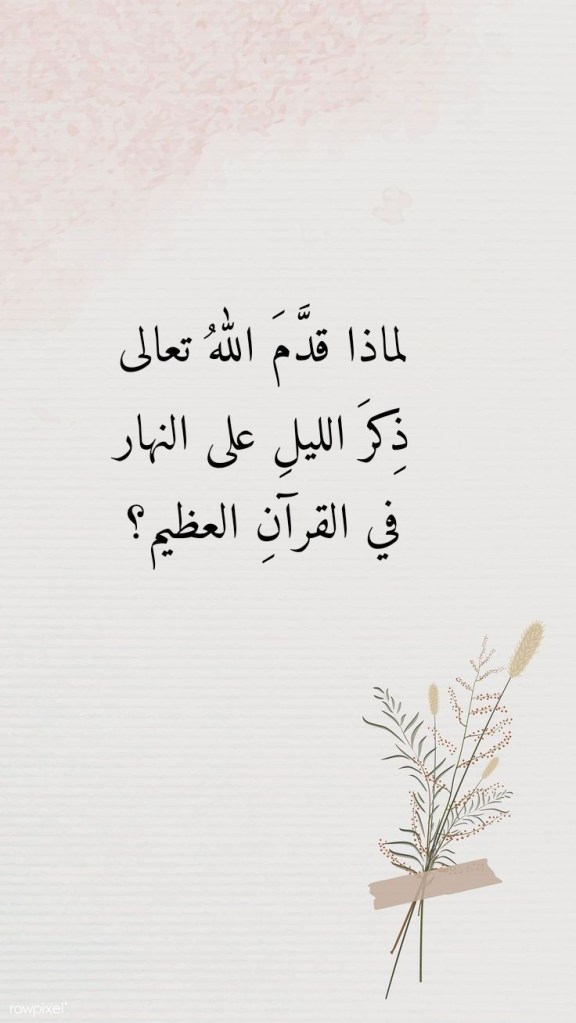 لماذا قدَّمَ اللهُ تعالى
ذِكرَ الليلِ على النهار
في القرآنِ العظيم؟
rawpixel